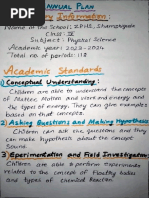 ANNUAL PLAN
Name of the School: ZPHS, Shamshiguda
Class: IX
Subject: Physical Science
Academic year: 2023-2024
Total no of periods: 112
Academic Standards
1) Conceptual Understanding:
Children are able to understand the concepts
of Matter, Motion and very energy and
types of energy. They can give examples
based on that concepts.
2) Asking Questions and Making Hypothesis
Children can ask the questions and they
can make hypothesis about the concept
Sound.
3) Experimentation and Field Investigation
Children are able perform experiments
related to the concept of floating bodies
and types of chemical Reaction